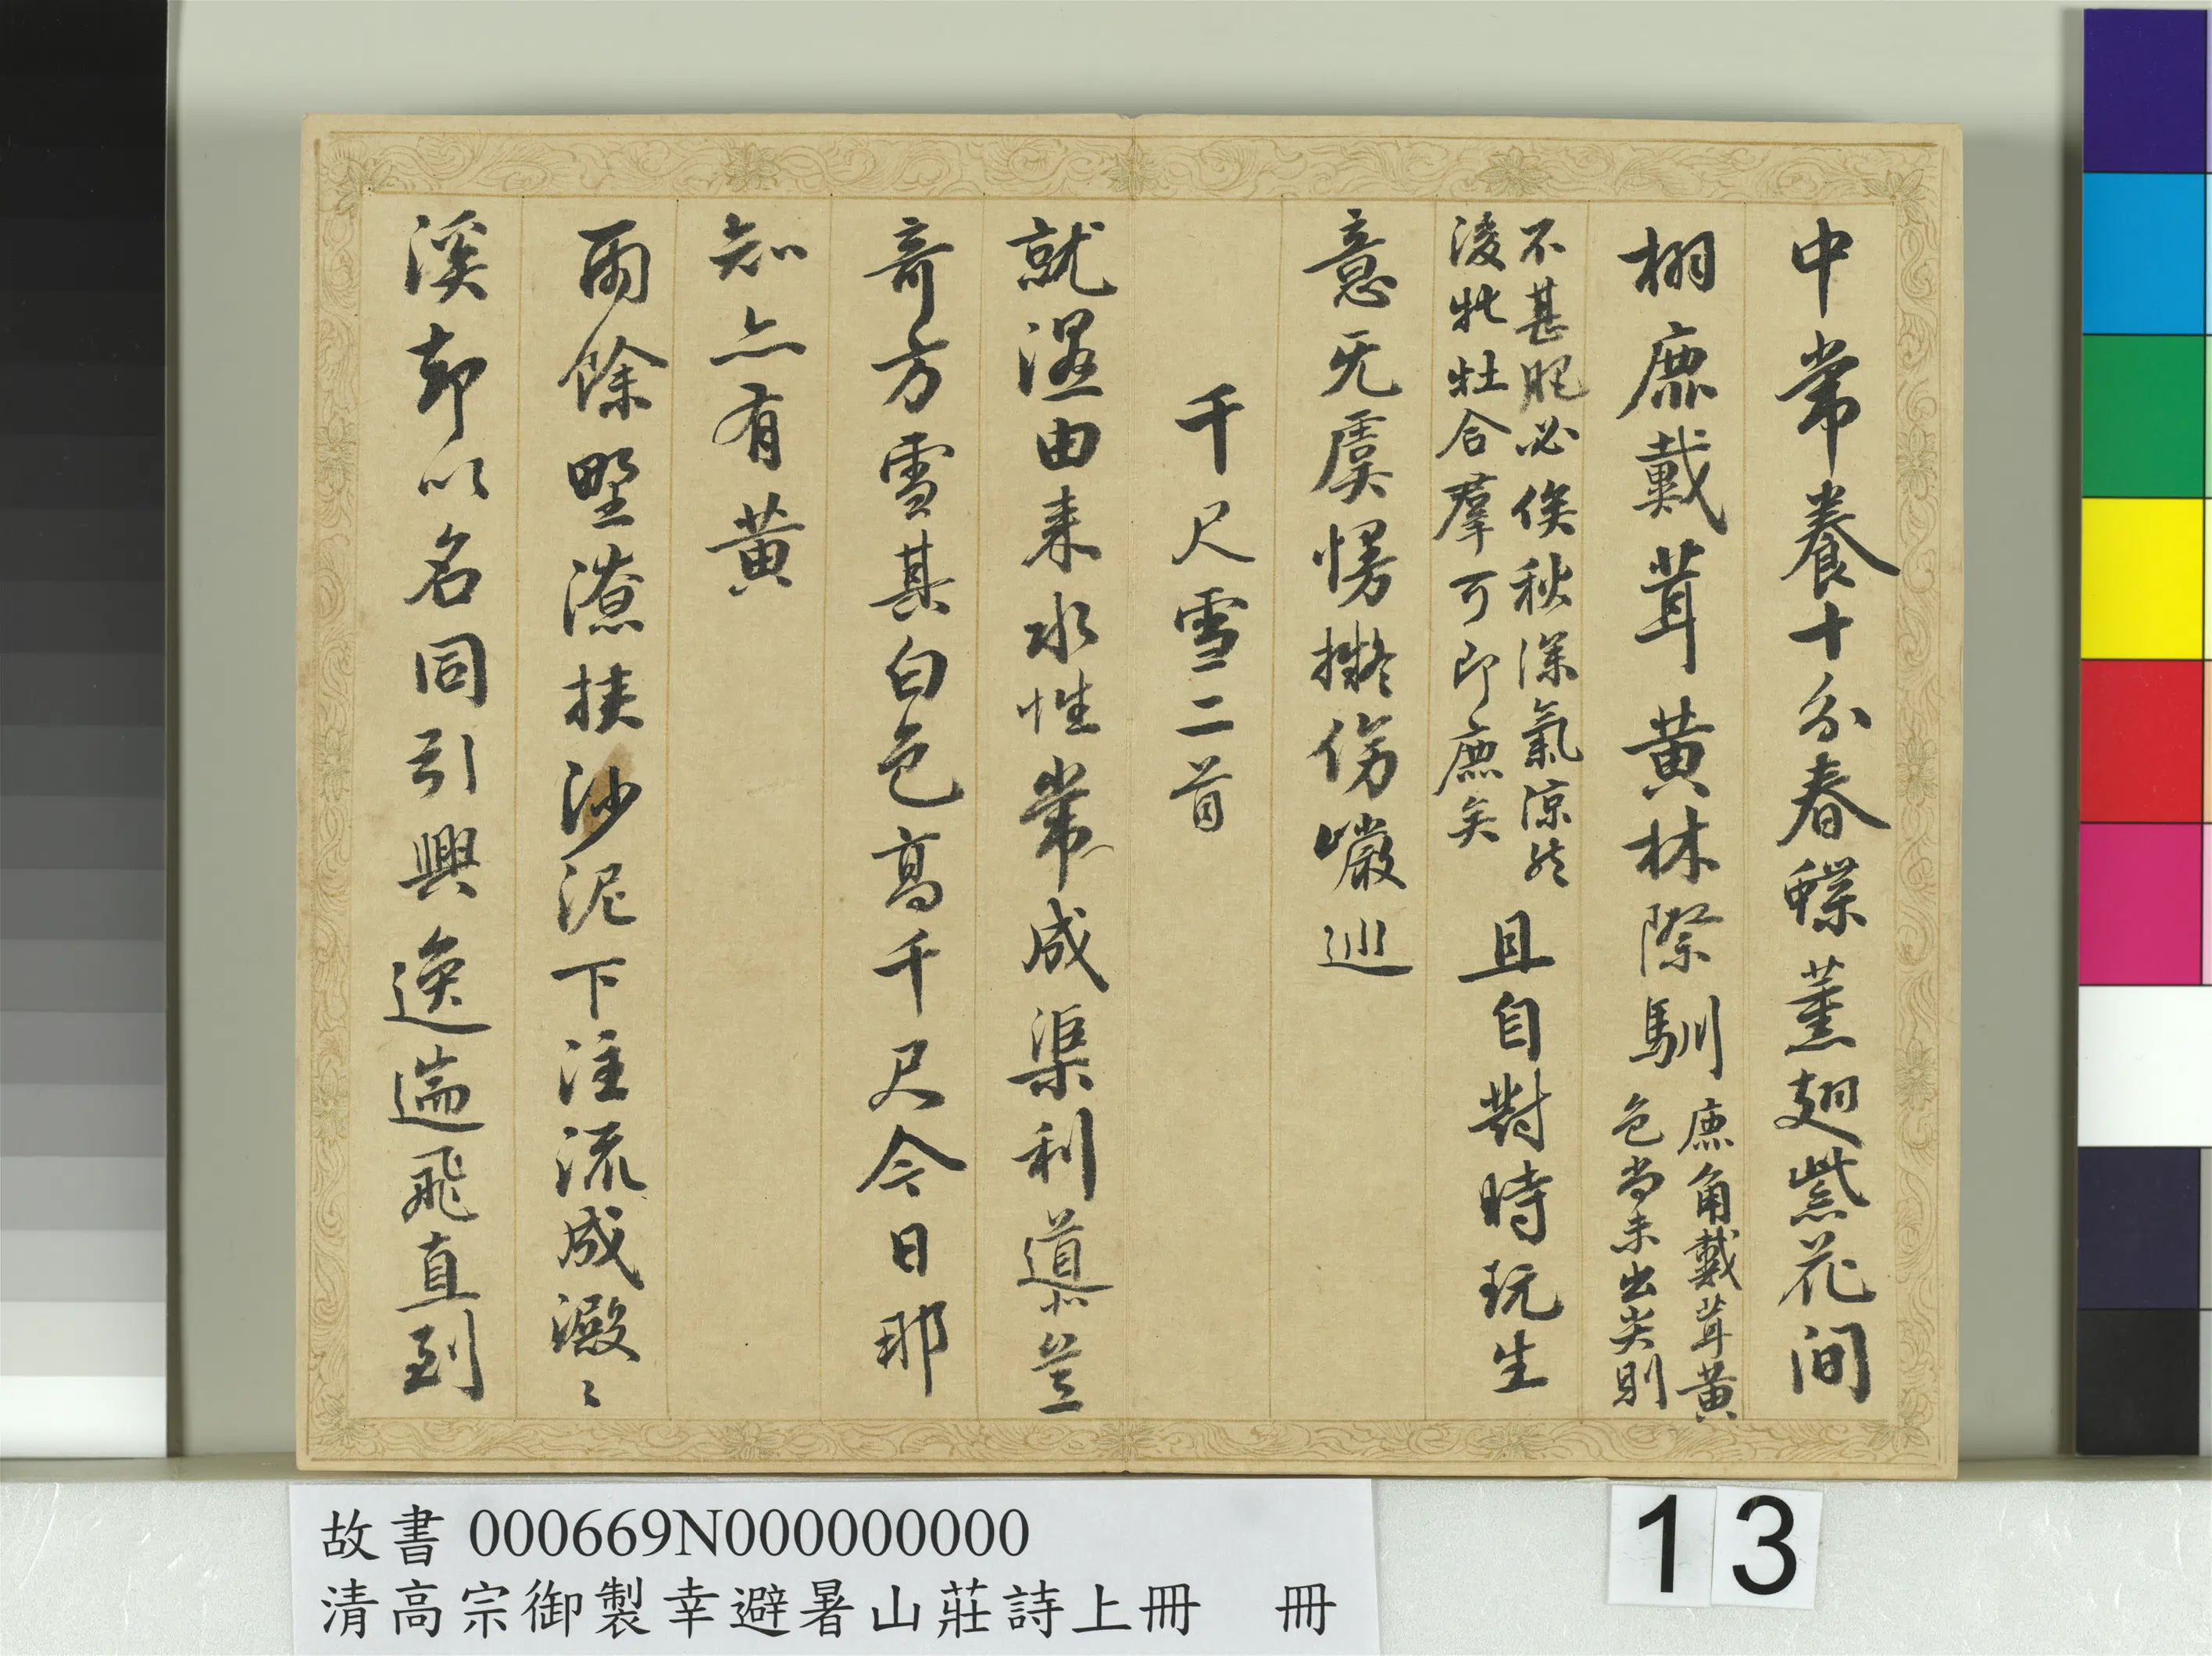 中常養十分春蝶薰翅紫花間
栩鹿戴茸黃林際馴鹿角戴茸黃
色尚未出尖則
不甚肥必俟秋深氣涼然
後牝牡合羣可即鹿矣且自對時玩生
意无虞愣擬傍巖巡
千尺雪二首
就濕由来水性常成渠利導豈
奇方雪其白色高千尺今日那
知亦有黃
雨餘野潦挾沙泥下注流成澱〻
溪却以名同引興逸遄飛直到
故書 000669N000000000
清高宗御製幸避暑山莊詩上冊 冊
13